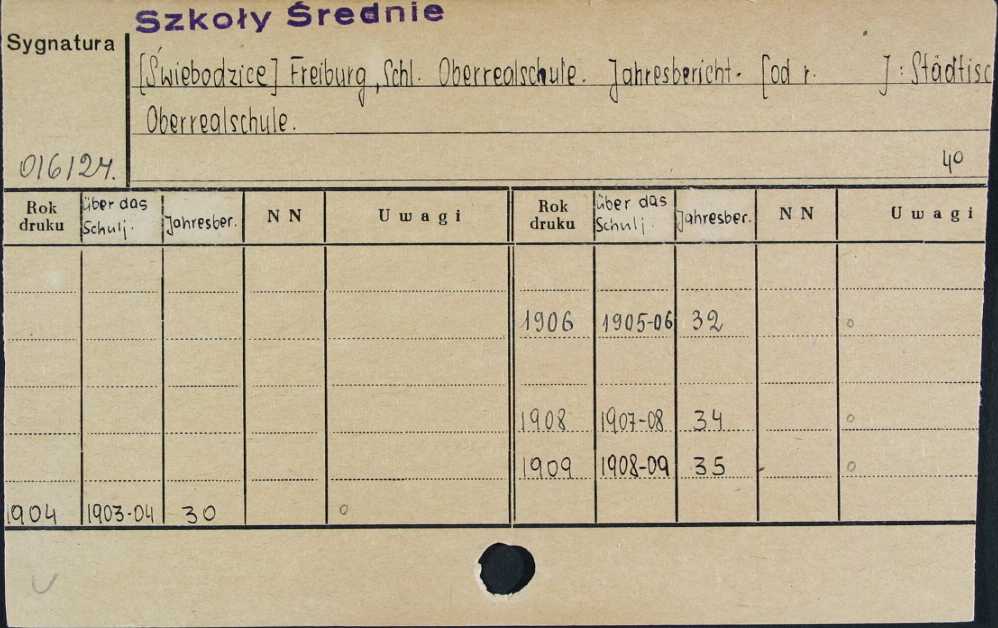 Szkoły Średnie
Sygnatura
[Świebodzice] Freiburg, Schl. Oberrealschule. Jahresbericht. [od r. ] : Städtisc
Oberrealschule.
016127. 40
Rok druku über das Schulj. Jahresber. NN Uwagi Rok druku über das Schulj. Jahresber. NN Uwagi
1906 1905-06 32 o
1908 1907-08 34 o
1909 1908-09 35 o
1904 1903-04 30 o